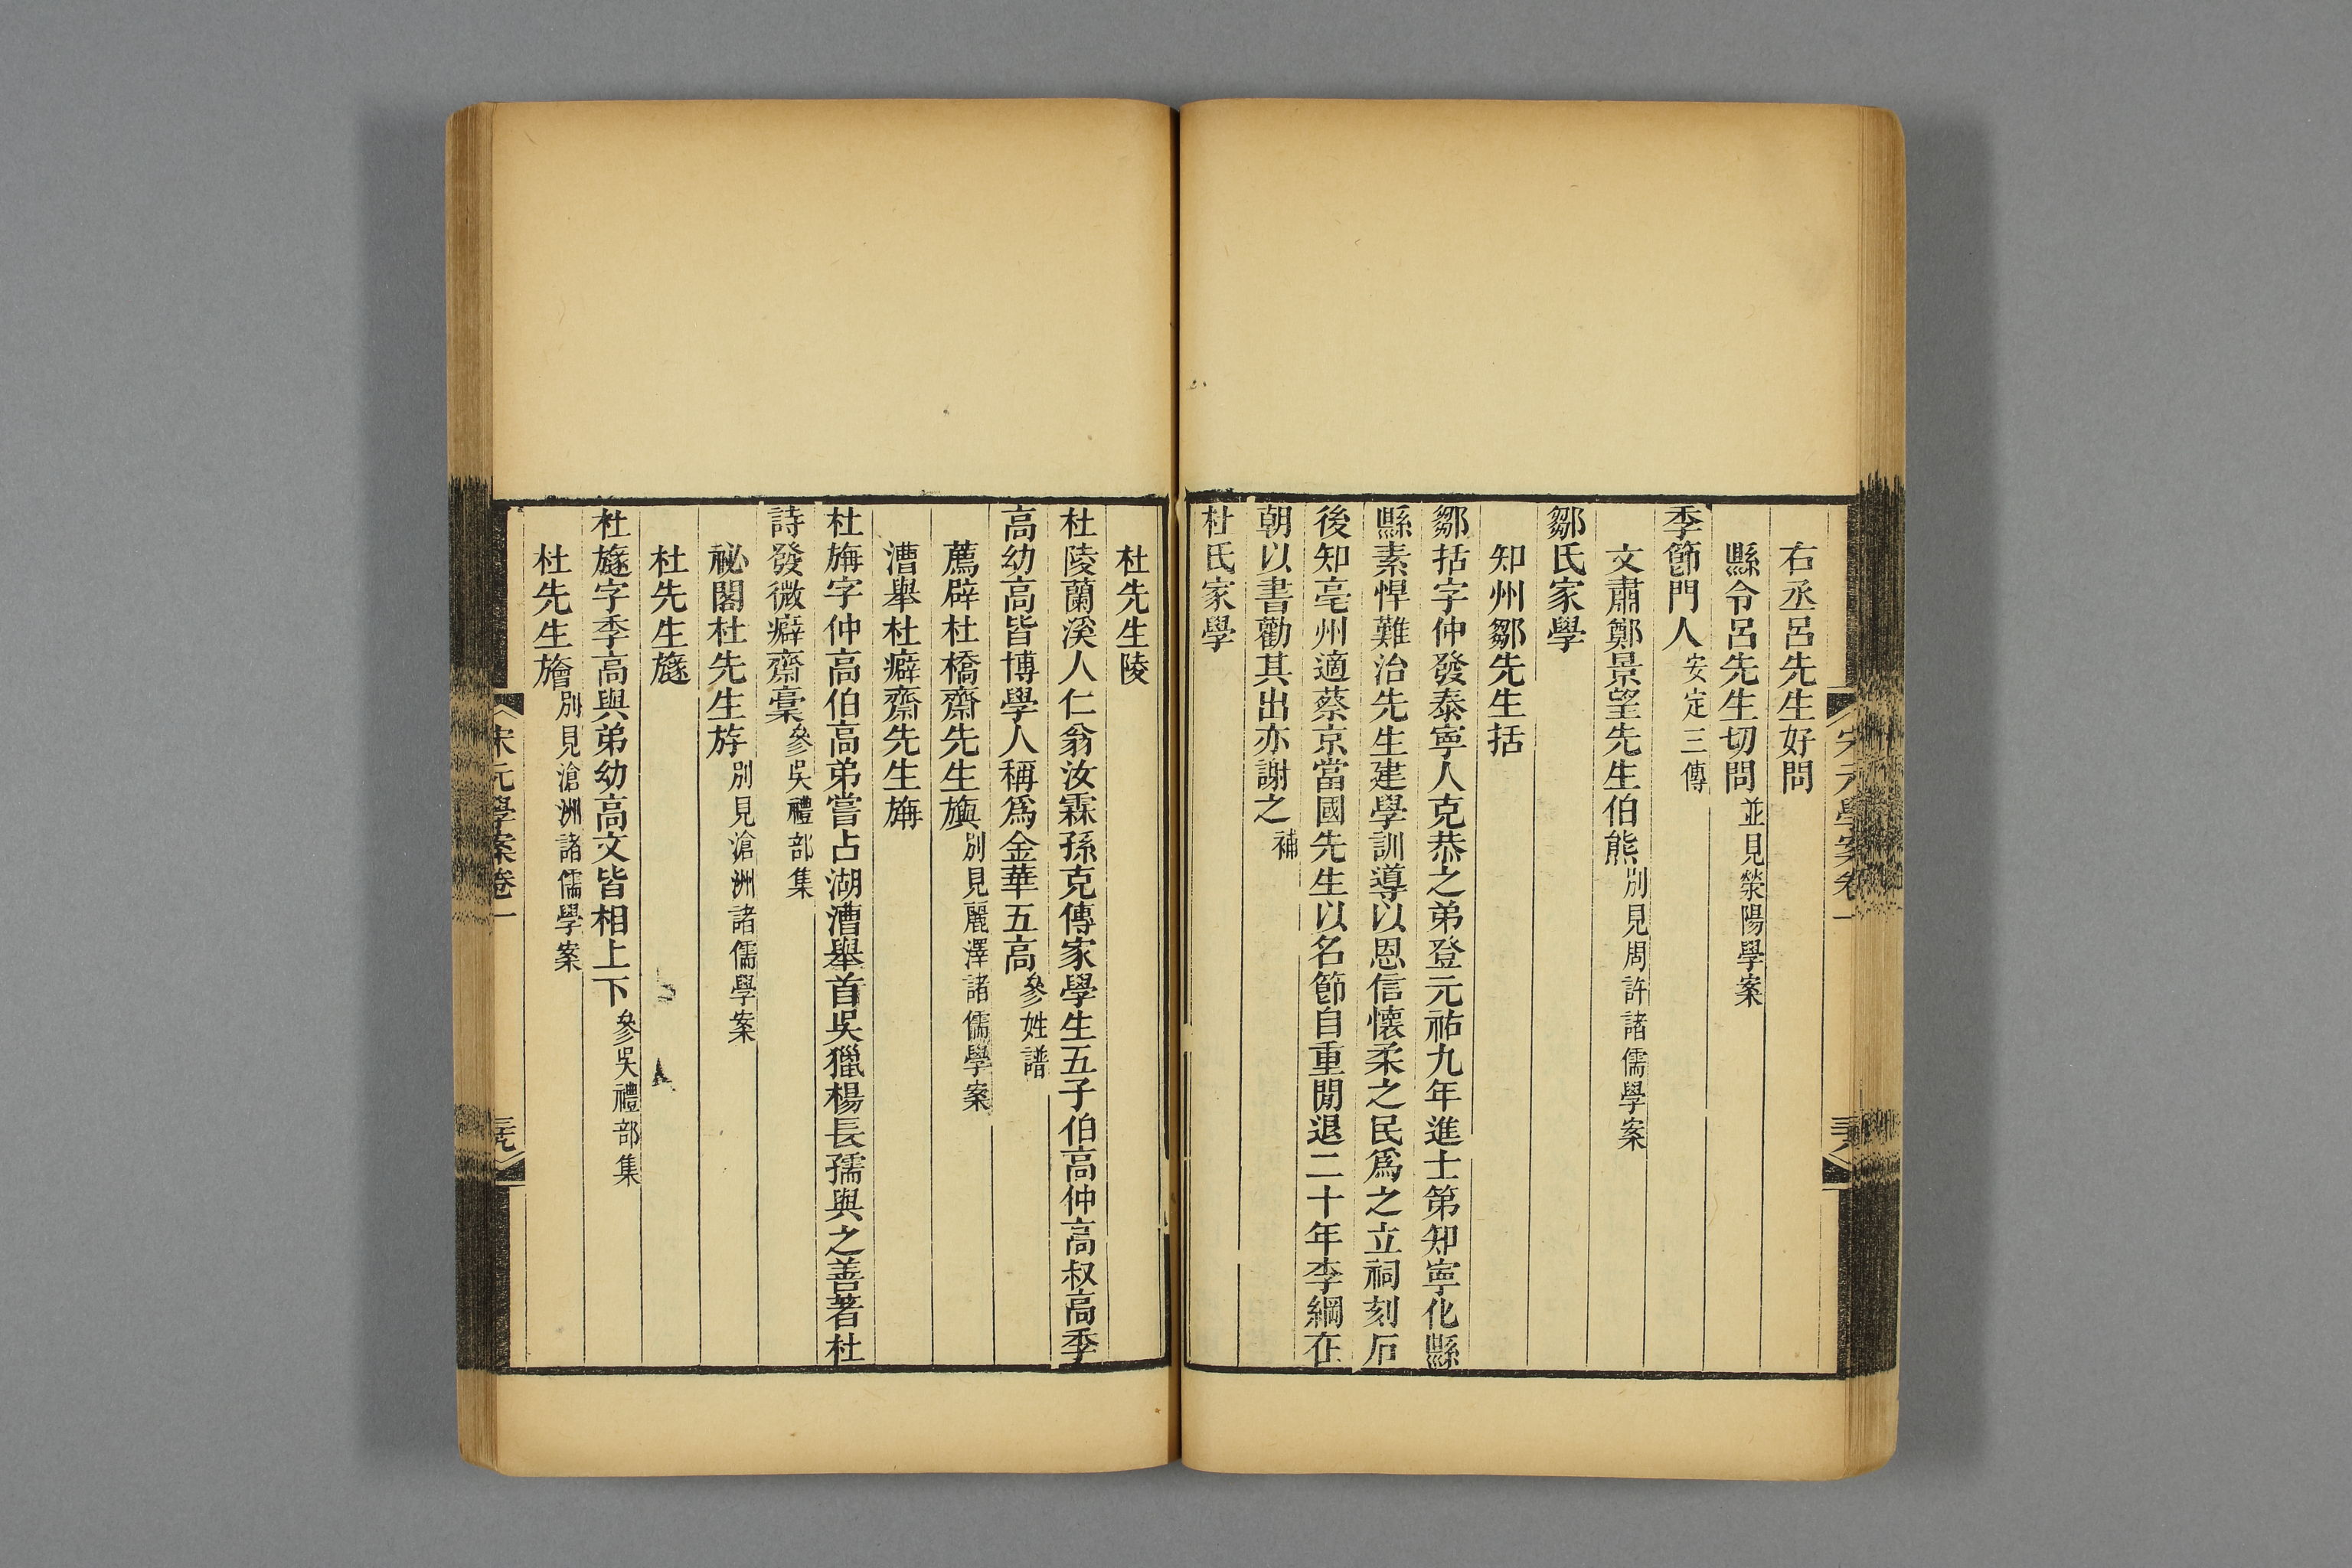 右丞呂先生好問
縣令呂先生切問並見滎陽學案
季節門人安定三傳
文肅鄭景望先生伯熊別見周許諸儒學案
鄒氏家學
知州鄒先生括
鄒括字仲發泰寧人克恭之弟登元祐九年進士第知寧化縣
縣素悍難治先生建學訓導以恩信懷柔之民爲之立祠刻石
後知亳州適蔡京當國先生以名節自重閒退二十年李綱在
朝以書勸其出亦謝之補
杜氏家學
杜先生陵
杜陵蘭溪人仁翁汝霖孫克傳家學生五子伯高仲高叔高季
高幼高皆博學人稱爲金華五高參姓譜
薦辟杜橋齋先生旟別見麗澤諸儒學案
漕舉杜癖齋先生旃
杜旃字仲高伯高弟嘗占湖漕舉首吳獵楊長孺與之善著杜
詩發微癖齋稾參吳禮部集
祕閣杜先生斿別見滄洲諸儒學案
杜先生旞
杜旞字季高與弟幼高文皆相上下參吳禮部集
杜先生旝別見滄洲諸儒學案
宋元學案卷一